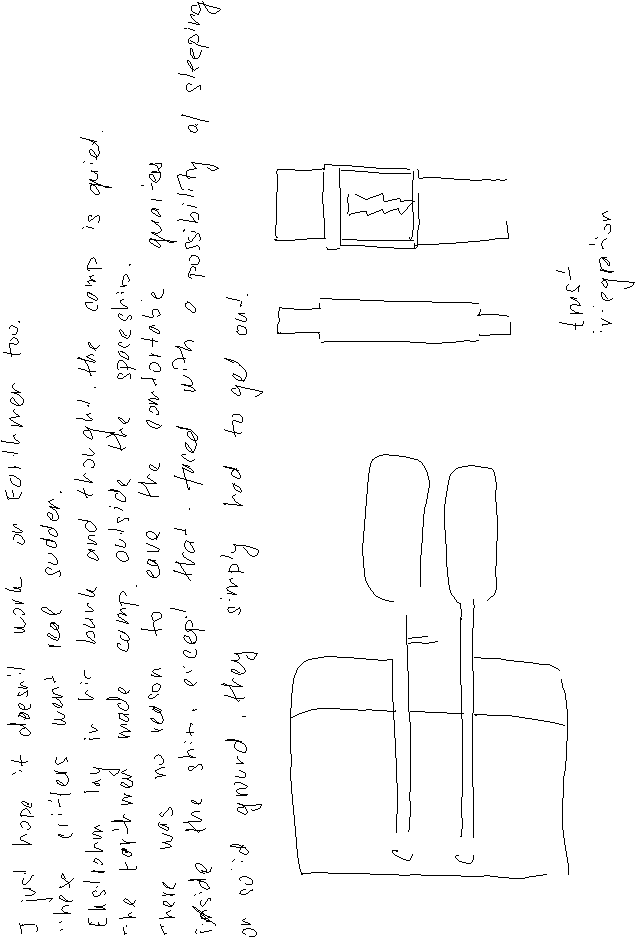 I just hope it doesn't work on Earthmen too.
These critters went real sudden.
Ekstrohm lay in his bunk and thought, the camp is quiet.
The Earthmen made camp outside the spaceship.
There was no reason to eave the comfortabe quarters
inside the ship, except that, faced with a possibility of sleeping
on soid ground, they simply had to get out.
trust
integration